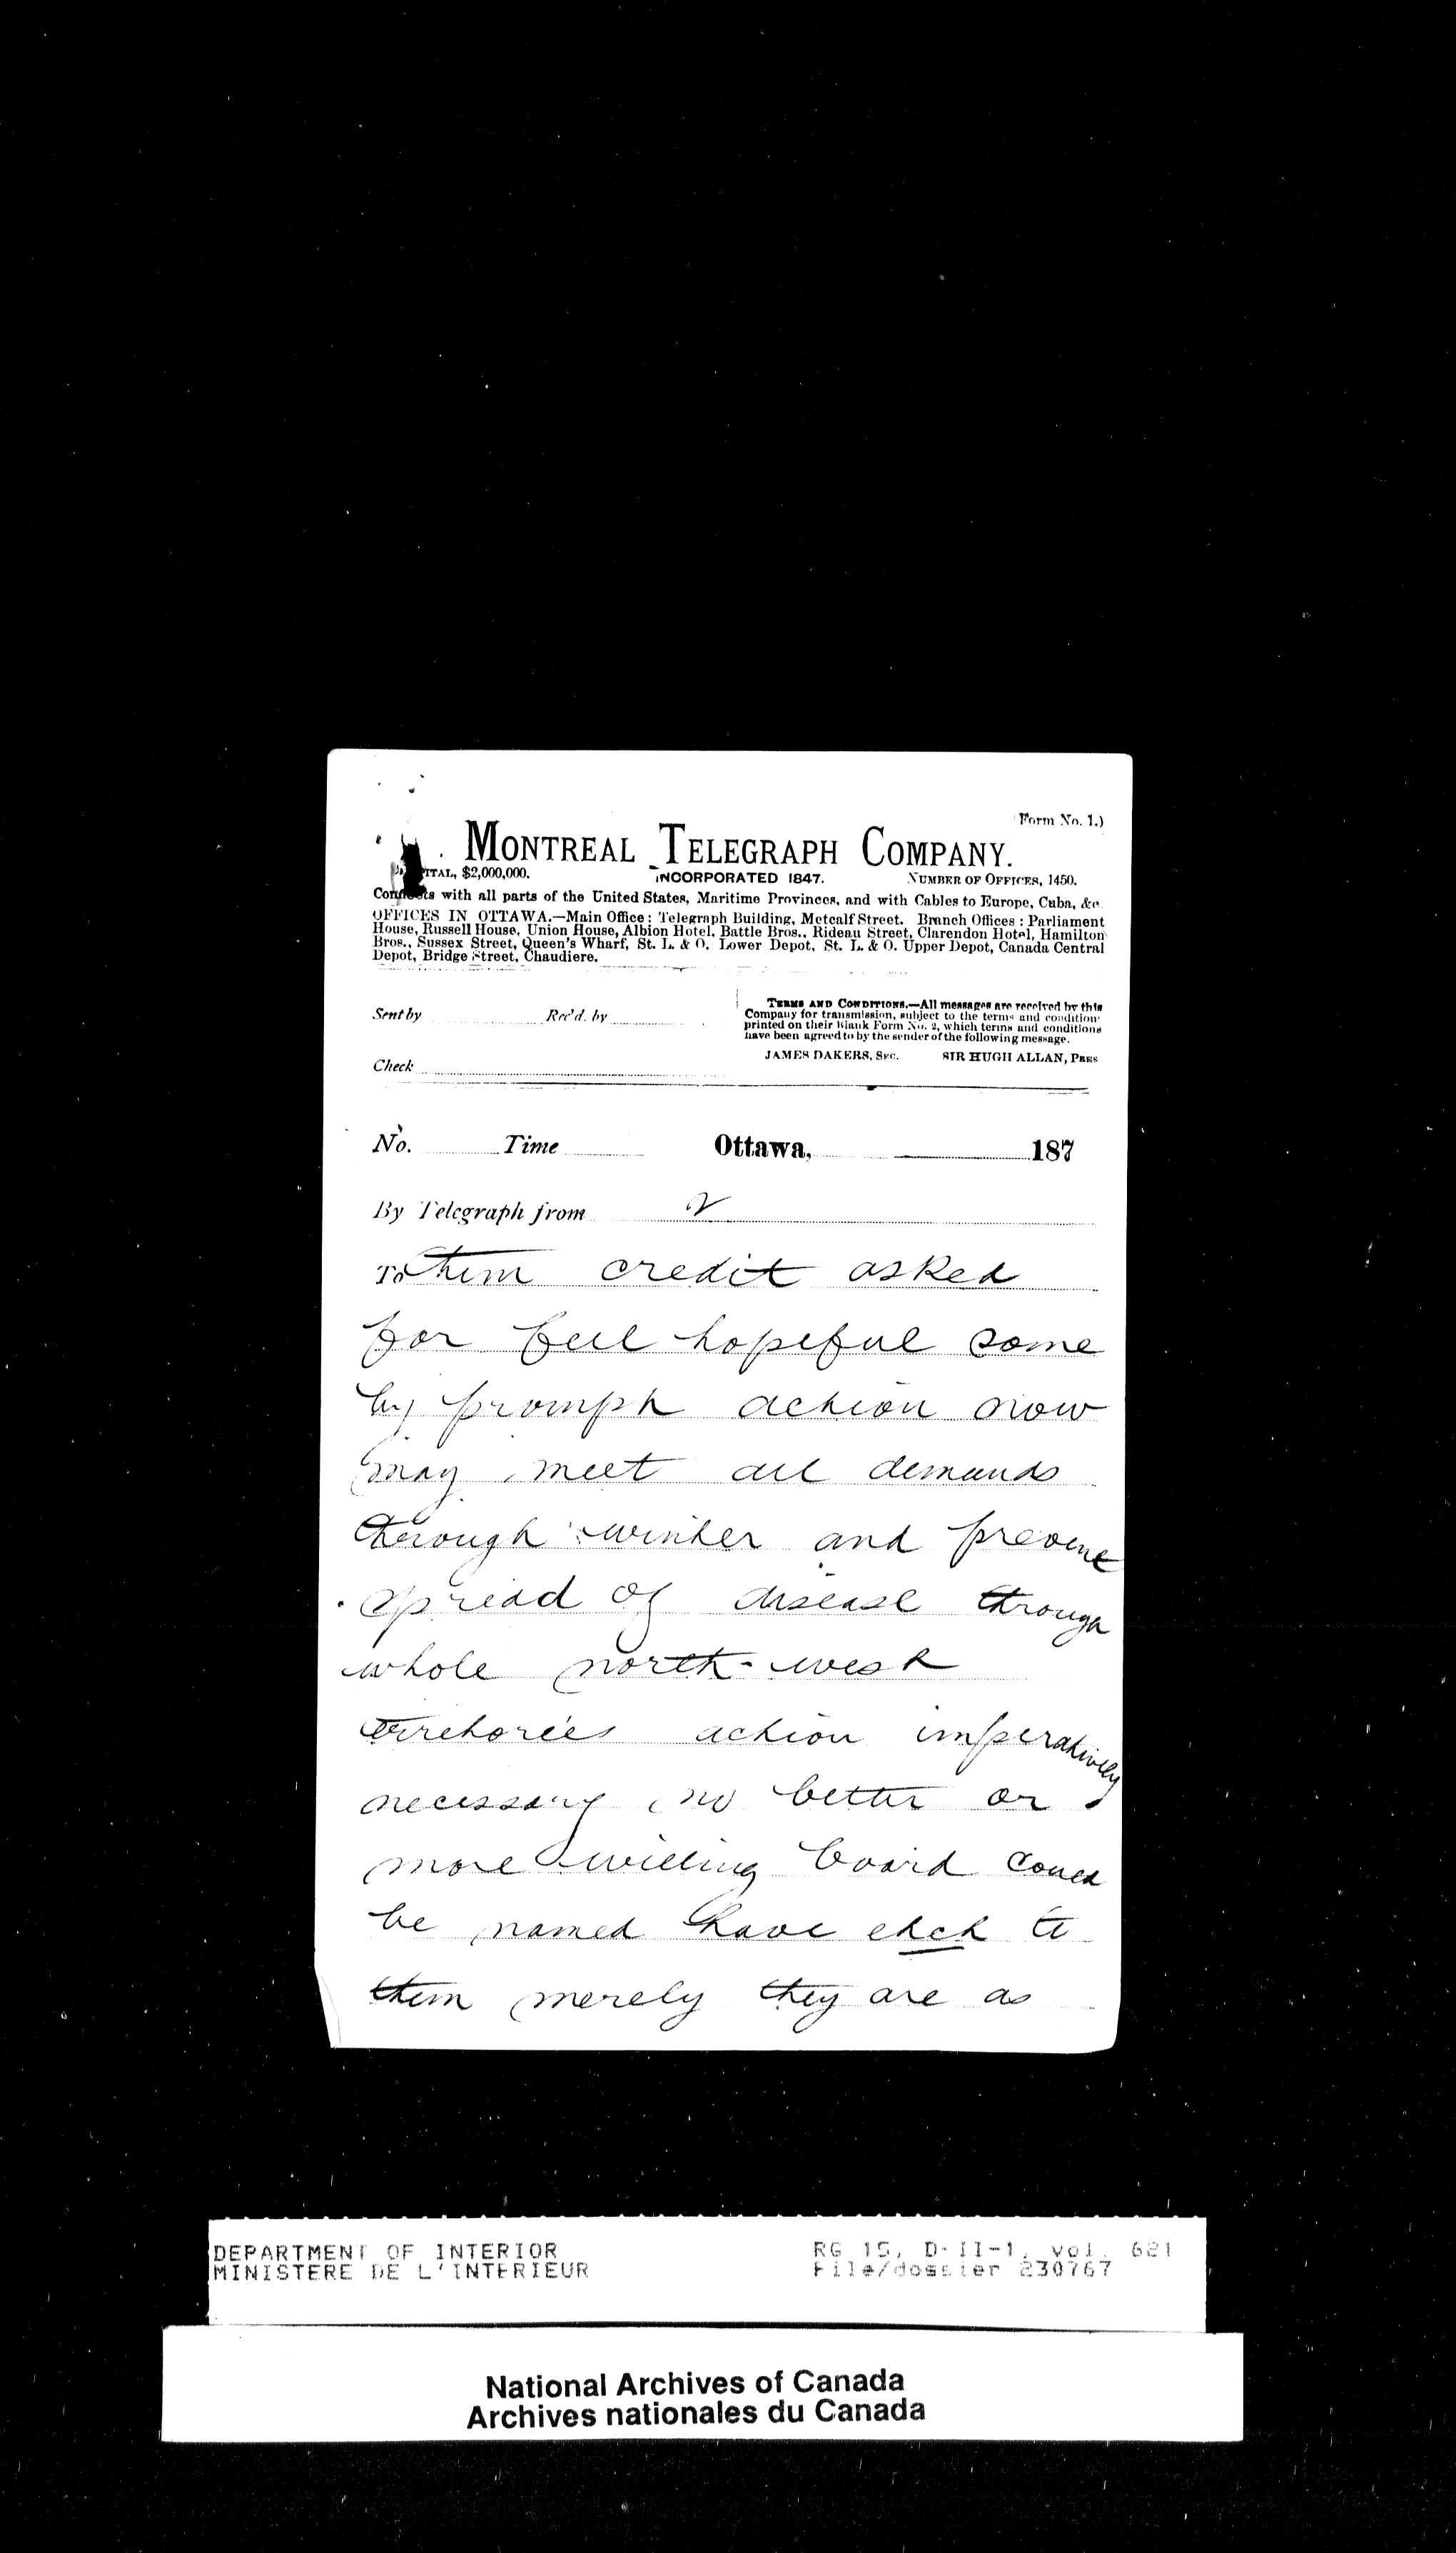 Form No. 1.)
MONTREAL TELEGRAPH COMPANY.
CAPITAL, $2,000,000. INCORPORATED 1847. NUMBER OF OFFICES, 1450.
Connects with all parts of the United States, Maritime Provinces, and with Cables to Europe, Cuba, &c.
OFFICES IN OTTAWA.—Main Office: Telegraph Building, Metcalf Street. Branch Offices: Parliament
House, Russell House, Union House, Albion Hotel, Battle Bros., Rideau Street, Clarendon Hotel, Hamilton
Bros., Sussex Street, Queen's Wharf, St. L. & O. Lower Depot, St. L. & O. Upper Depot, Canada Central
Depot, Bridge Street, Chaudiere.
Sent by Rec'd. by
Check
TERMS AND CONDITIONS.—All messages are received by this
Company for transmission, subject to the terms and condition
printed on their Blank Form No. 2, which terms and conditions
have been agreed to by the sender of the following message.
JAMES DAKERS, SEC. SIR HUGH ALLAN, PRES
No. Time Ottawa, 187
By Telegraph from 2
To them credit asked
for feel hopeful some
by prompt action now
may meet all demands
through winter and prevent
spread of disease through
whole north-west
territories action imperatively
necessary no better or
more willing board could
be named have to
them merely they are as
DEPARTMENT OF INTERIOR RG 15, D-II-1, vol. 621
MINISTERE DE L'INTERIEUR File/dossier 230767
National Archives of Canada
Archives nationales du Canada